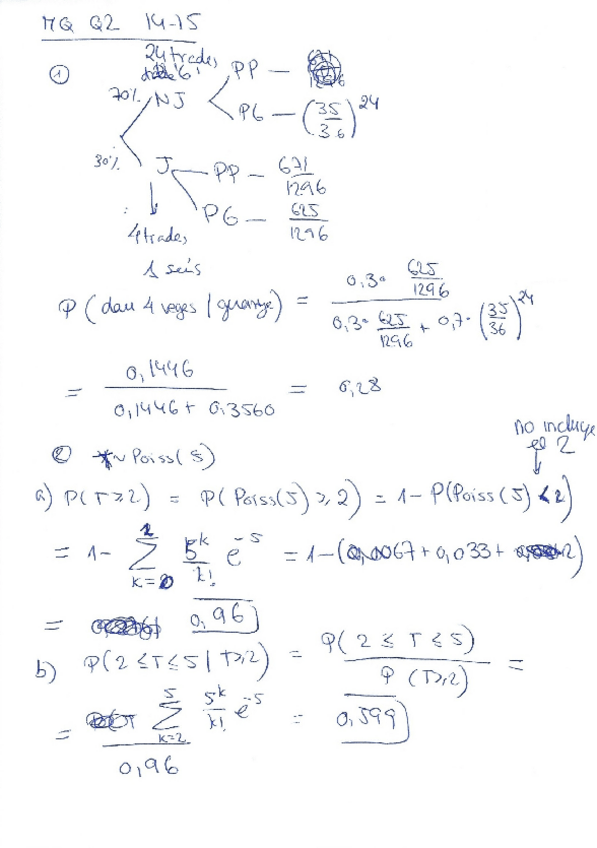 MQ Q2 14-15
24 trades
① 6!
70% NJ PP —
PG — (35/36)^24
30% J PP — 671/1296
PG — 625/1296
4 trades
1 seis
P(dau 4 veges / guanye) = 0,3· 625/1296 / 0,3· 625/1296 + 0,7· (35/36)^24
= 0,1446 / 0,1446 + 0,3560 = 0,28
② ~ Poiss(5)
no incluye el 2
↓
a) P(T≥2) = P(Poiss(5)≥2) = 1 - P(Poiss(5) < 2)
= 1 - Σ k=0 5^k/k! e^-5 = 1 - (0,0067 + 0,033 + )
= 0,96
b) P(2 ≤ T ≤ 5 | T≥2) = P(2 ≤ T ≤ 5) / P(T≥2) =
= Σ 5 k=2 5^k/k! e^-5 / 0,96 = 0,599